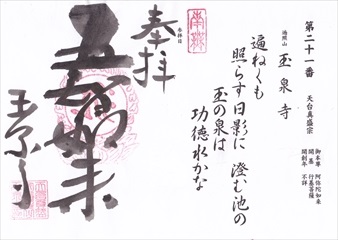 第二十一番
天台真盛宗
御本尊 阿弥陀如来
開基 行基菩薩
開創年 不詳
玉泉寺
遍ねくも
照らす日影に 澄む池の
玉の泉は
功徳水かな
奉拝
玉泉寺